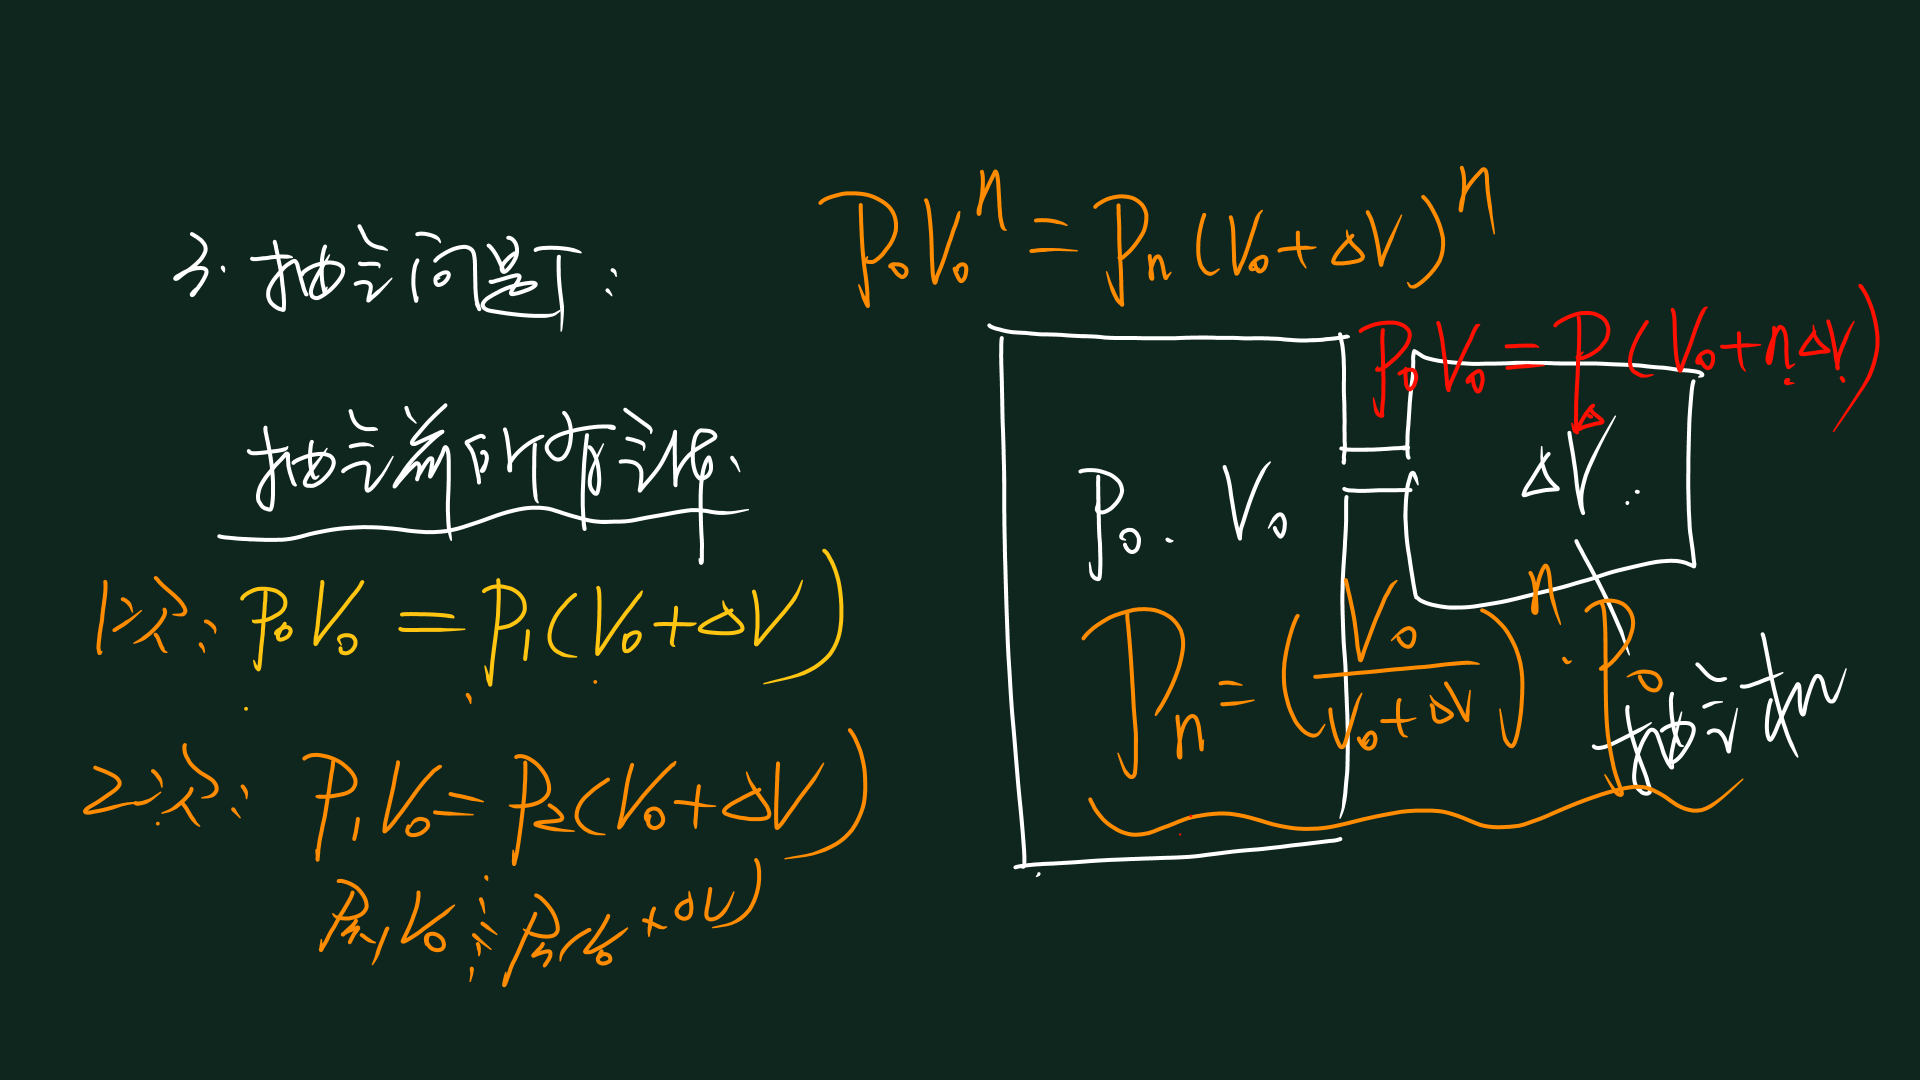 3. 抽气问题:
抽气前所有气体.
1次: P₀V₀ = P₁(V₀+ΔV)
2次: P₁V₀ = P₂(V₀+ΔV)
Pₙ₋₁V₀ = Pₙ(V₀+ΔV)
P₀V₀ⁿ = Pₙ(V₀+ΔV)ⁿ
P₀V₀ = P(V₀+nΔV)
P₀. V₀
ΔV.
Pₙ = (V₀/(V₀+ΔV))ⁿ · P₀
抽气